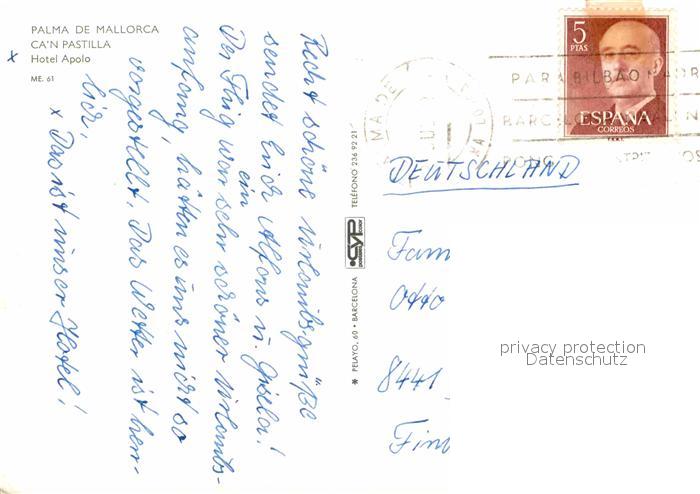 PALMA DE MALLORCA
CA'N PASTILLA
x Hotel Apolo
ME. 61
Recht schöne Urlaubsgrüße
sendet Euch Alfons u. Gisela!
Der Flug war sehr ein schöner Urlaubs-
anfang, hätten es uns nicht so
vorgestellt. Das Wetter ist herr-
lich,
x Das ist unser Hotel!
* PELAYO, 60 • BARCELONA
CYP
TELÉFONO 236 92 21
5
PTAS
ESPAÑA
CORREOS
PARA BILBAO MADR
BARCELONA
DEUTSCHLAND
Fam
Otto
8441
privacy protection
Datenschutz